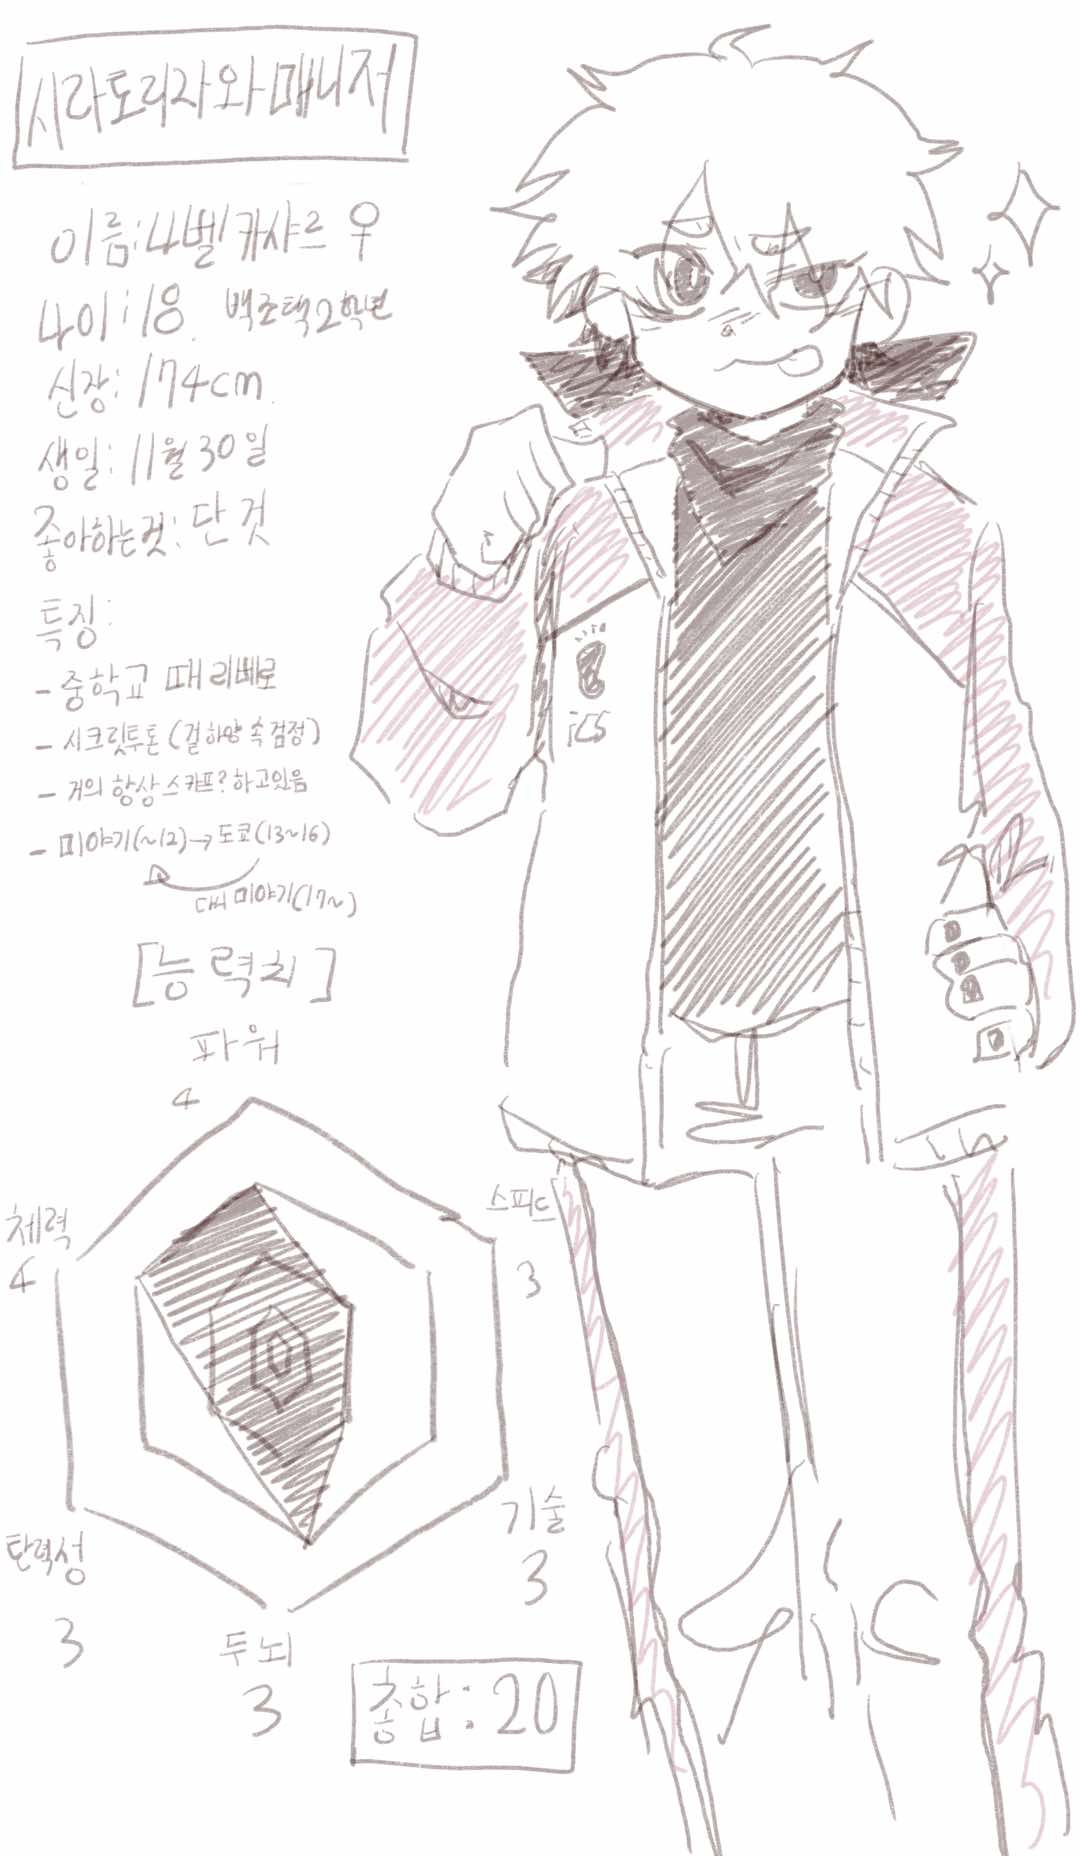 시라토리자와 매니저
이름: 나벨 카샤르 우
나이: 18 백조택 2학년
신장: 174cm
생일: 11월 30일
좋아하는것: 단 것
특징:
- 중학교 때 리베로
- 시크릿투톤 (겉하양 속검정)
- 거의 항상 스카프? 하고있음
- 미야기(~12)→도쿄(13~16)
미야기(17~)
[능력치]
파워
4
체력
4
스피드
3
기술
3
탄력성
3
두뇌
3
총합: 20